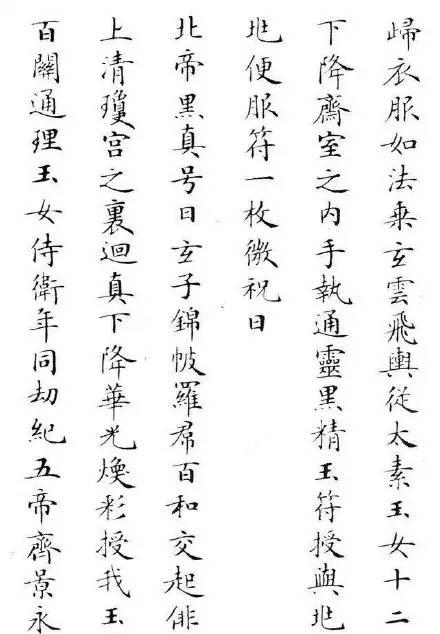 歸衣服如法乗玄雲飛輿從太素玉女十二
下降齋室之内手執通靈黒精玉符授與地
地便服符一枚微祝曰
北帝黒真号曰玄子錦帔羅帬百和交起俳
上清瓊宫之裏迴真下降華光煥彩授我玉
百關通理玉女侍衛年同劫紀五帝齊景永